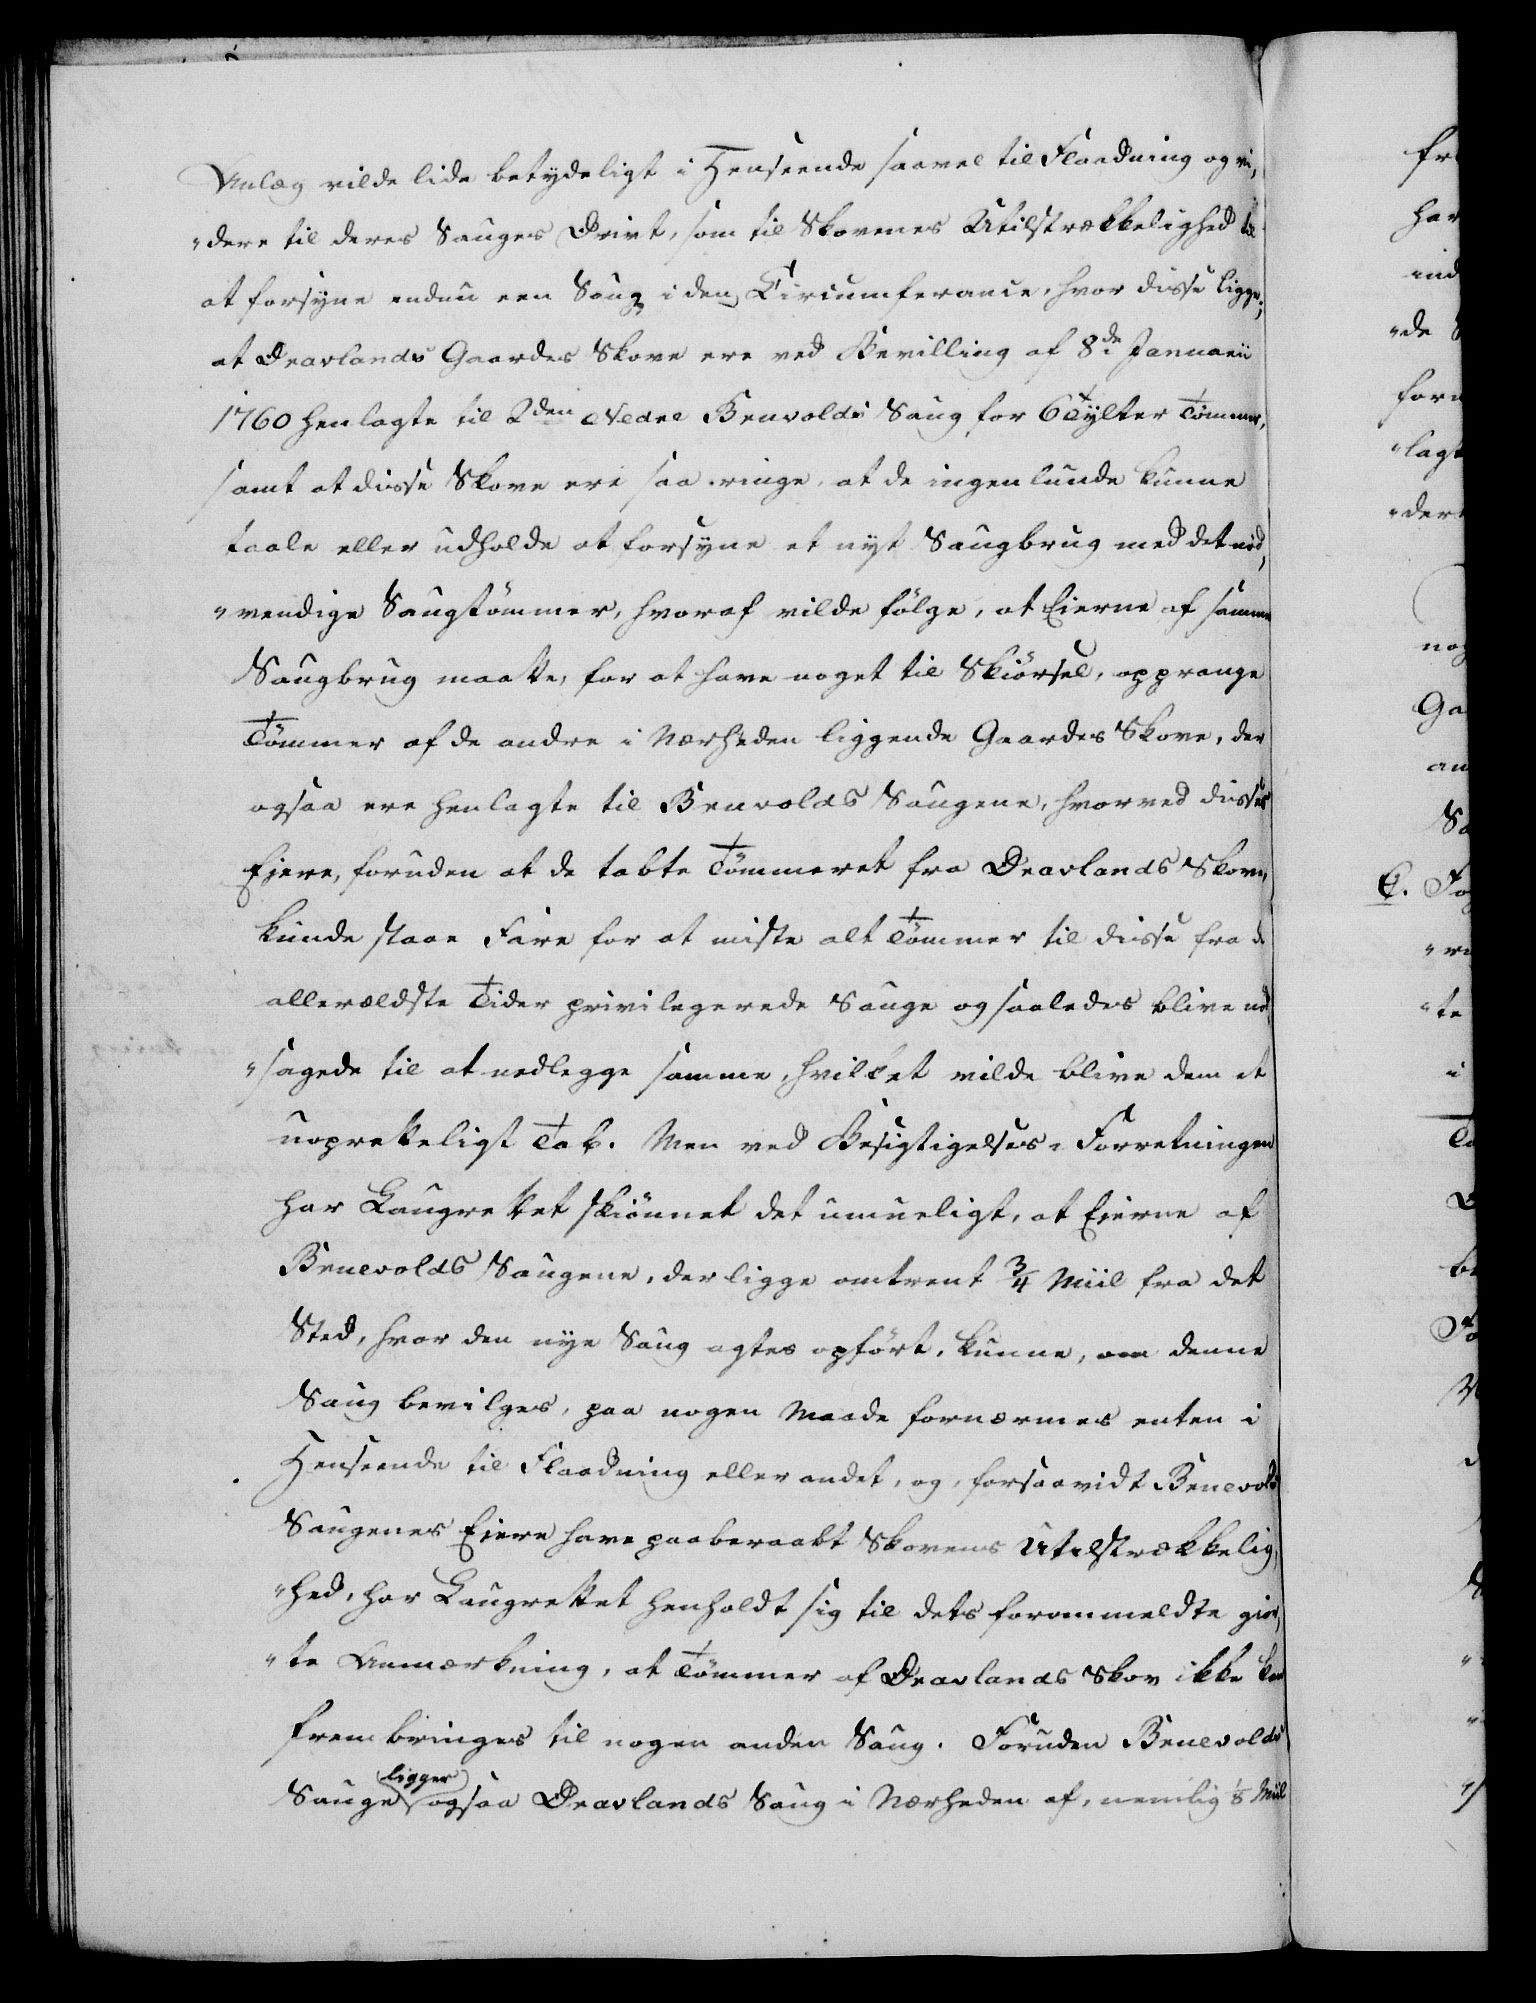 Anlæg vilde lide betydeligt i Henseende saavel til Flaadning og vi,
"dere til deres Sauges Drivt, som til Skovenes Utilstrækkelighed til
at forsyne endnu een Saug i den Circumferance, hvor disse ligge;
at Dravlands Gaardes Skove ere ved Bevilling af 8de Januarii
1760 henlagte til 2den Nedre Benvolds Saug for 6 Tylter Tømmer,
samt at disse Skove ere saa ringe, at de ingenlunde kunne
taale eller udholde at forsyne et nyt Saugbrug med det nød,
"vendige Saugtömmer, hvoraf vilde fölge, at Eierne af samme
Saugbrug maatte, for at have noget til Skiörsel, opprange
Tömmer af de andre i Nærheden liggende Gaardes Skove, der
ogsaa ere henlagte til Benvolds Saugene, hvorved disses
Eiere, foruden at de tabte Tömmeret fra Dravlands Skove,
kunde staae Fare for at miste alt Tömmer til disse fra de
allerældste Tider privilegerede Sauge og saaledes blive nød
"sagede til at nedlegge samme, hvilket vilde blive dem et
uopretteligt Tab. Men ved Besigtigelses-Forretningen
har Laugrettet skiönnet det umueligt, at Eierne af
Benevolds Saugene, der ligge omtrent 3/4 Miil fra det
Sted, hvor den nye Saug agtes opfört, kunne, om denne
Saug bevilges, paa nogen Maade fornærmes enten i
Henseende til Flaadning eller andet, og, forsaavidt Benevolds
Saugenes Eiere have paaberaabt Skovens Utilstrækkelig,
"hed, har Laugrettet henholdt sig til dets forommeldte gior,
"te Anmærkning, at Tömmer af Dravlands Skov ikke kan
frembringes til nogen anden Saug. Foruden Benevolds
Sauge ligger ogsaa Dravlands Saug i Nærheden af, nemlig 1/8 Miil